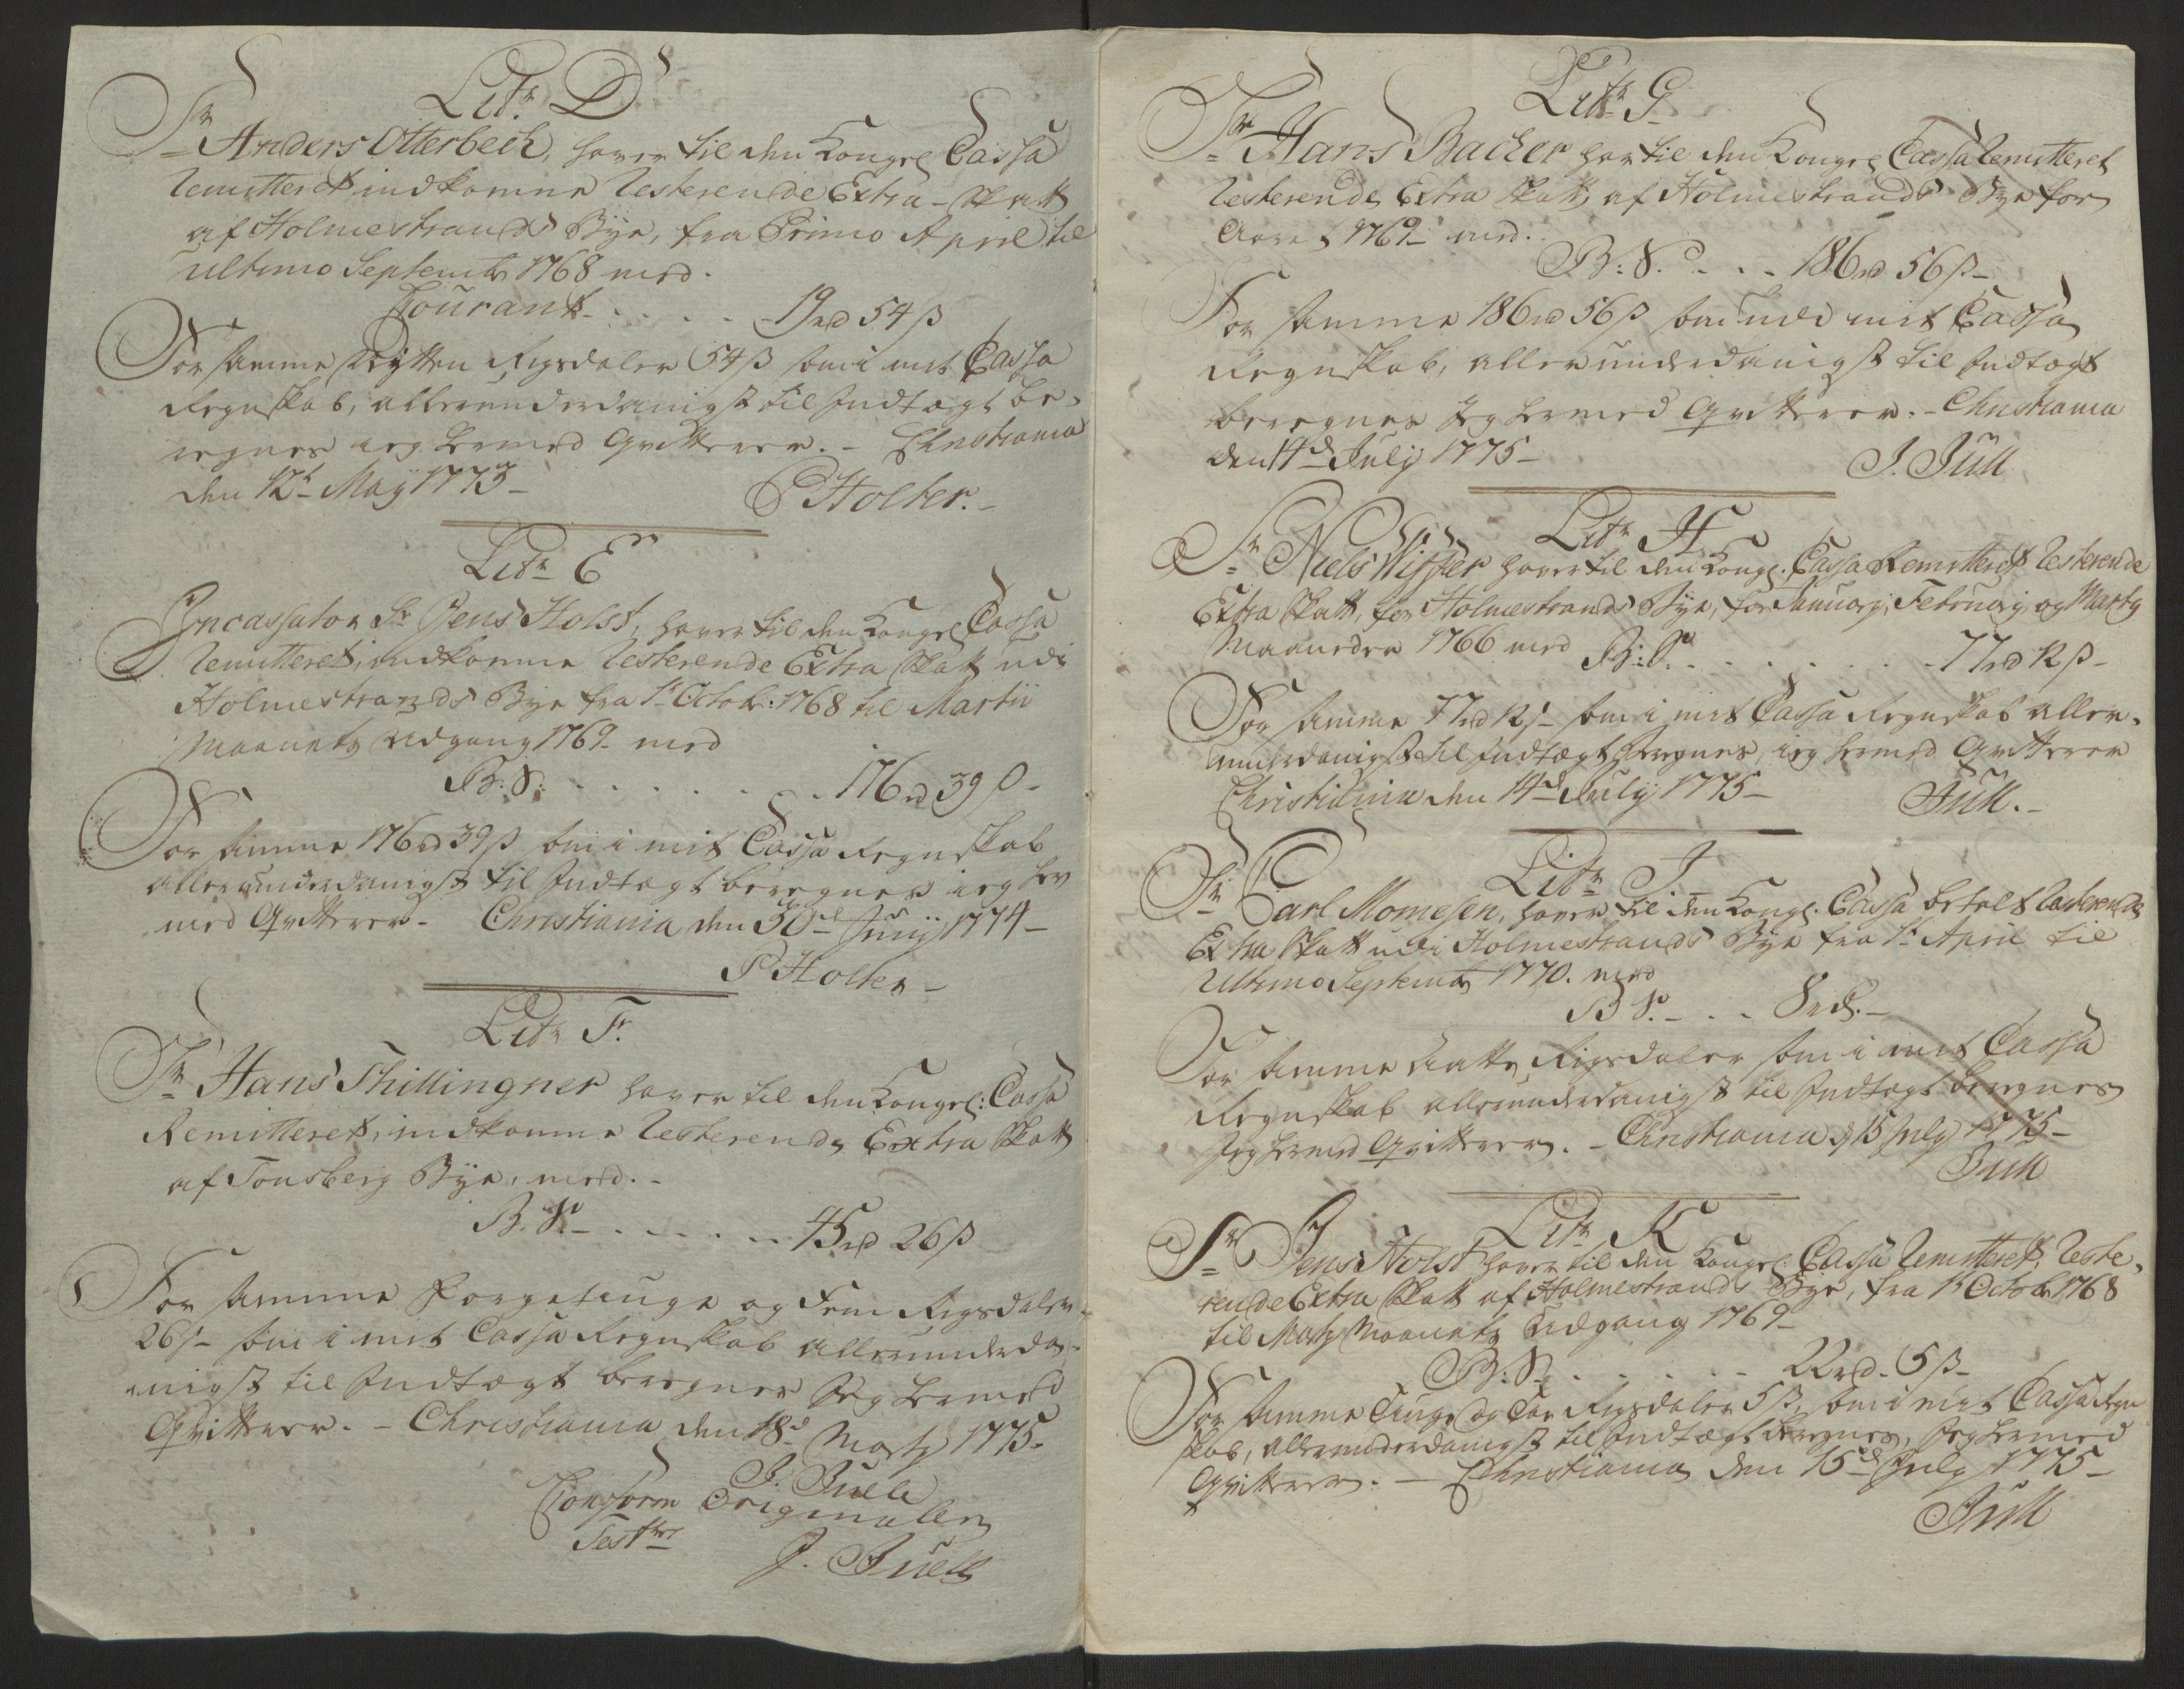 Litr. D
Sr Anders Otterbech, haver til den Kongel Cassa
remitteret indkomne resterende Extra-Skatt
af Holmestrands Bye, fra Primo April til
ultimo Septembr 1768 med.
Courant - . . . . 19 rd 54 ß
For samme Nytten Rigsdaler 54 ß som i mit Cassa
Regnskab, allerunderdanigst til Indtægt be-
regnes ieg hermed Qvitterer. - Christiania
den 12t May 1773 -
P Holter. -
Litr E
Incassator Sr Jens Holst, haver til den Kongel Cassa
remitteret, indkomne resterende Extra Skatt udi
Holmestrands Bye fra 1t Octobr: 1768 til Martii
Maanets udgang 1769 - med
B: S: . . . . . . . 176 rd 39 ß -
For samme 176 rd 39 ß som i mit Cassa Regnskab
allerunderdanigst til Indtægt beregnes ieg her
med Qvitterer - Christiania den 30d Junij 1774 -
P Holter -
Litr F.
Sr Hans Thillingner haver til den Kongel: Cassa
Remitteret, indkomne resterende Extra Skatt
af Tonsberg Bye, med. -
B. S. - . . . . . 45 rd 26 ß
For samme Forgetiuge og Fem Rigsdaler
26 ß - som i mit Cassa Regnskab allerunderda-
nigst til Indtægt beregner Jeg hermed
Qvitterer. - Christiania den 18d Martj 1775 -
J. Juell
Conform Originalen
Test
J. Juell
Litr G
Sr Hans Backer har til den Kongel Cassa remitteret
resterende Extra Skatt af Holmestrands Bye for
Aaret 1769 - med.
B: S. . . - 186 rd 56 ß -
For samme 186 rd 56 ß som udi mit Cassa
Regnskab, allerunderdanigst til Indtægt
beregnes Jeg hermed Qvitterer. - Christiania
den 14d July 1775 -
J. Jull
Litr H
Sr Niels Wisser haver til den Kongl. Cassa Remitteret resterende
Extra Skatt, for Holmestrands Bye, for Januarj, Februarj og Martj
Maaneder 1766 med B: S. . . . . . . 77 rd 12 ß -
For samme 77 rd 12 ß - som i mit Cassa Regnskab aller-
underdanigst til Indtægt beregnes, ieg hermed Qvitterer
Christiania den 14d July 1775 -
Jull. -
Litr J.
Sr Carl Momesen, haver til den Kongl. Cassa betalt resterende
Extra Skatt udi Holmestrands Bye fra 1t April til
Ultimo Septembr 1770. med
B S. - . . - 8 rd. -
For samme Aatte Rigsdaler som i mit Cassa
Regnskab allerunderdanigst til Indtægt beregnes
Jeg hermed Qvitterer. - Christiania d 15 July 1775 -
Jull
Litr K
Sr Jens Holst haver til den Kongel: Cassa remitteret, reste-
rende Extra Skatt af Holmestrands Bye, fra 1t Octobr 1768
til Martj Maanets Udgang 1769 -
B: S. . . . . . - 22 rd. 5 ß -
For samme Tiuge og Toe Rigsdaler 5 ß, som i mit Cassa Regn
skab, allerunderdanigst til Indtægt beregnes, Jeg hermed
Qvitterer. - Christiania den 15d July 1775 -
Jull